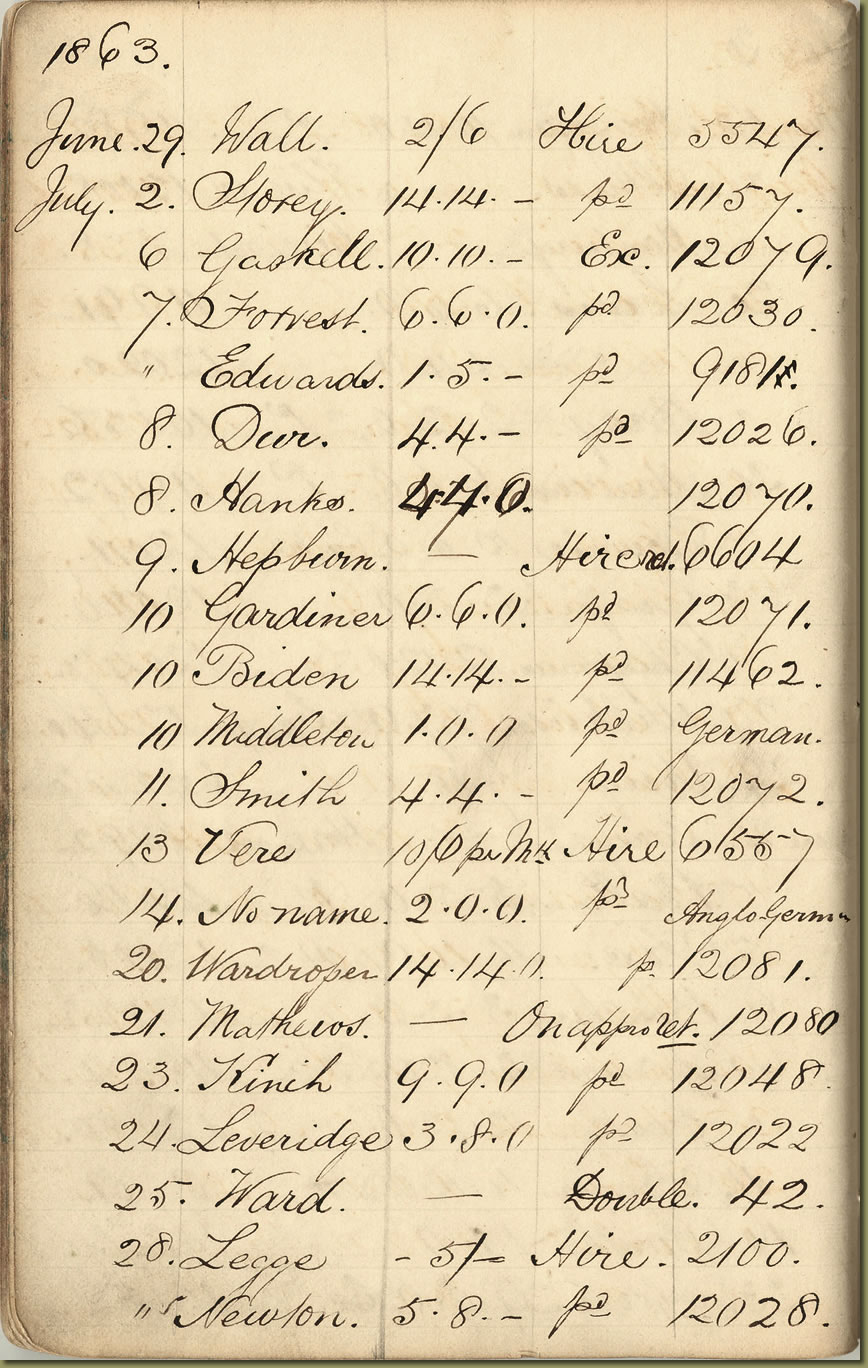 1863.
June. 29. Wall. 2/6 Hire 5547.
July. 2. Storey. 14.14.- pd 11157.
6 Gaskell. 10.10.- Ex. 12079.
7. Forrest. 6.6.0. pd 12030.
" Edwards. 1.5.- pd
8. Dur. 4.4.- pd 12026.
8. Hanks. 12070.
9. Hepburn. — Hire 6604
10 Gardiner 6.6.0. pd 12071.
10 Biden 14.14.- pd 11462.
10 Middleton 1.0.0 pd German.
11. Smith 4.4.- pd 12072.
13 Vere 10/6 pr Mth Hire
14. No name. 2.0.0. pd Anglo Germn
20. Wardroper 14.14.0. p. 12081.
21. Mathews. — On appro ret. 12080
23. 9.9.0 pd 12048.
24. Leveridge 3.8.0 pd 12022
25. Ward. — Double. 42.
28. Legge - 5/- Hire. 2100.
" Newton. 5.8.- pd 12028.